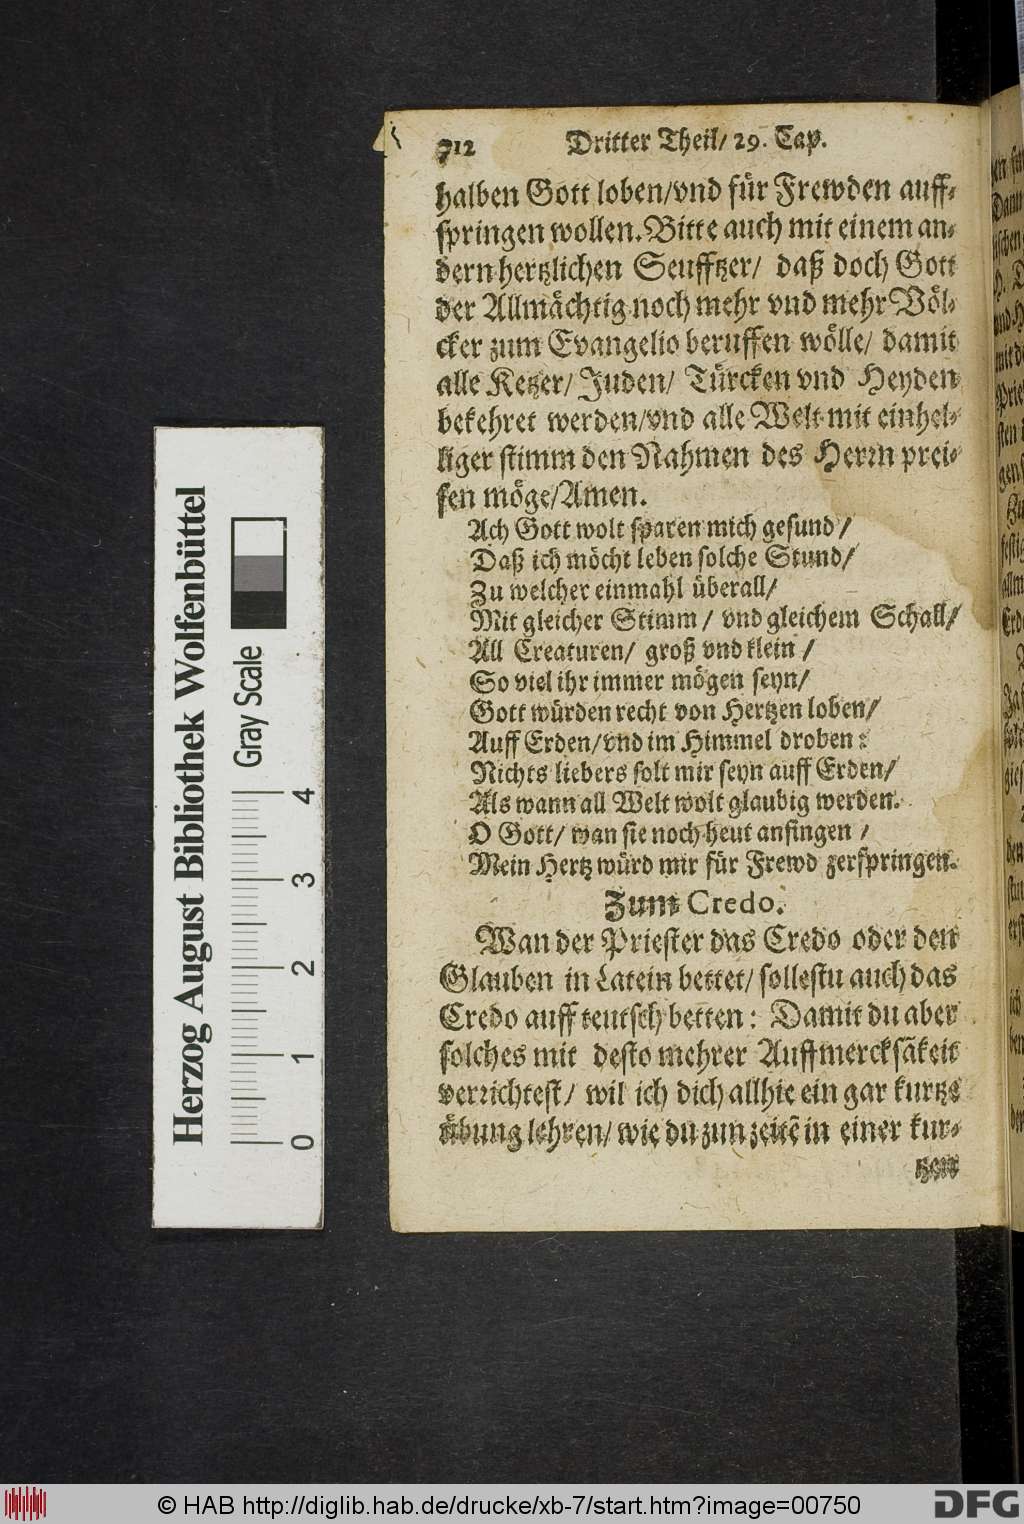 712 Dritter Theil/ 29. Cap.
halben Gott loben/vnd für Frewden auff-
springen wollen. Bitte auch mit einem an-
dern hertzlichen Seufftzer/ daß doch Gott
der Allmächtig noch mehr vnd mehr Völ-
cker zum Evangelio beruffen wölle/ damit
alle Ketzer/ Juden/ Türcken vnd Heyden
bekehret werden/vnd alle Welt mit einhel-
liger stimm den Nahmen des Herrn prei-
sen möge/Amen.
Ach Gott wolt sparen mich gesund/
Daß ich möcht leben solche Stund/
Zu welcher einmahl überall/
Mit gleicher Stimm/ vnd gleichem Schall/
All Creaturen/ groß vnd klein/
So viel ihr immer mögen seyn/
Gott würden recht von Hertzen loben/
Auff Erden/vnd im Himmel droben:
Nichts liebers solt mir seyn auff Erden/
Als wann all Welt wolt glaubig werden.
O Gott/ wan sie noch heut anfingen/
Mein Hertz würd mir für Frewd zerspringen.
Zum Credo.
Wan der Priester das Credo oder den
Glauben in Latein bettet/ sollestu auch das
Credo auff teutsch betten: Damit du aber
solches mit desto mehrer Auffmercksãkeit
verrichtest/ wil ich dich allhie ein gar kurtze
übung lehren/ wie du zun zeitẽ in einer kur-
tzen
Herzog August Bibliothek Wolfenbüttel
Gray Scale
0 1 2 3 4
© HAB http://diglib.hab.de/drucke/xb-7/start.htm?image=00750
DFG